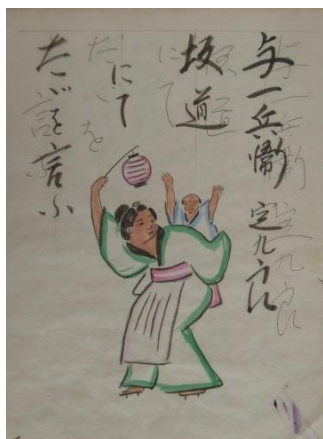 与一兵衛 定九郎
坂道
にて
たゞを言ふ